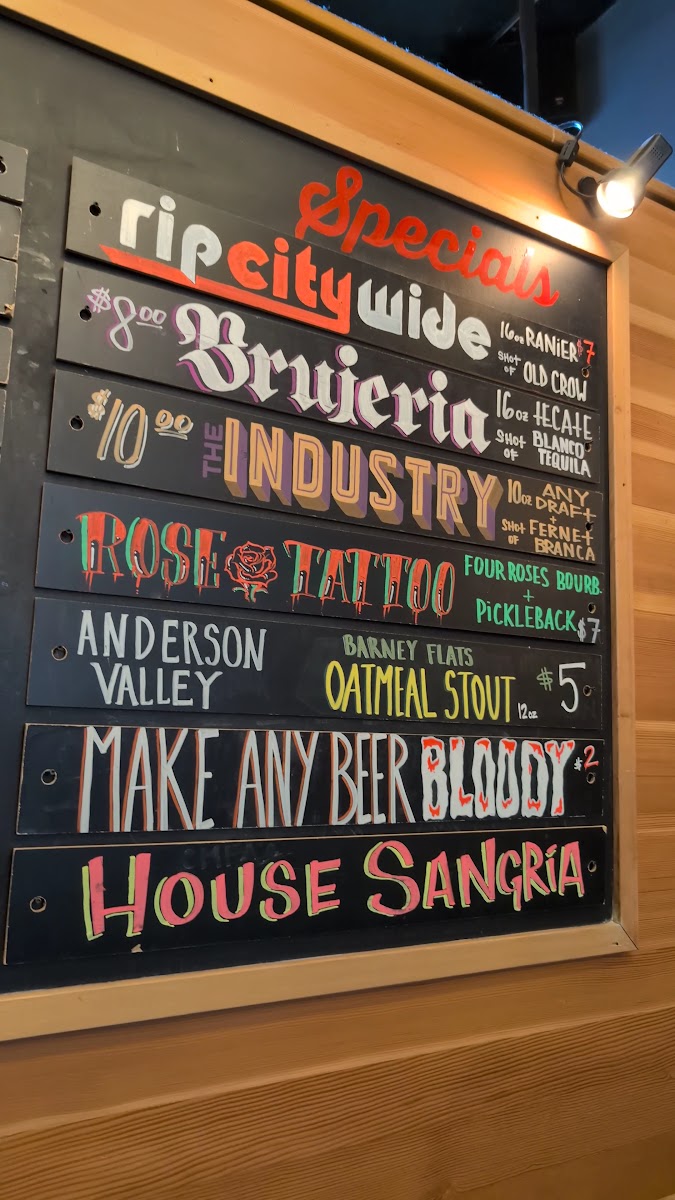 Specials
rip city wide 16oz RANIER $7
SHOT OF OLD CROW
$8.00 Brujeria 16oz TECATE
SHOT OF BLANCO TEQUILA
$10.00 THE INDUSTRY 10oz ANY DRAFT
+
SHOT OF FERNET BRANCA
ROSE TATTOO FOUR ROSES BOURB.
+
PICKLEBACK $7
ANDERSON VALLEY
BARNEY FLATS
OATMEAL STOUT 12oz $5
MAKE ANY BEER BLOODY $2
HOUSE SANGRíA